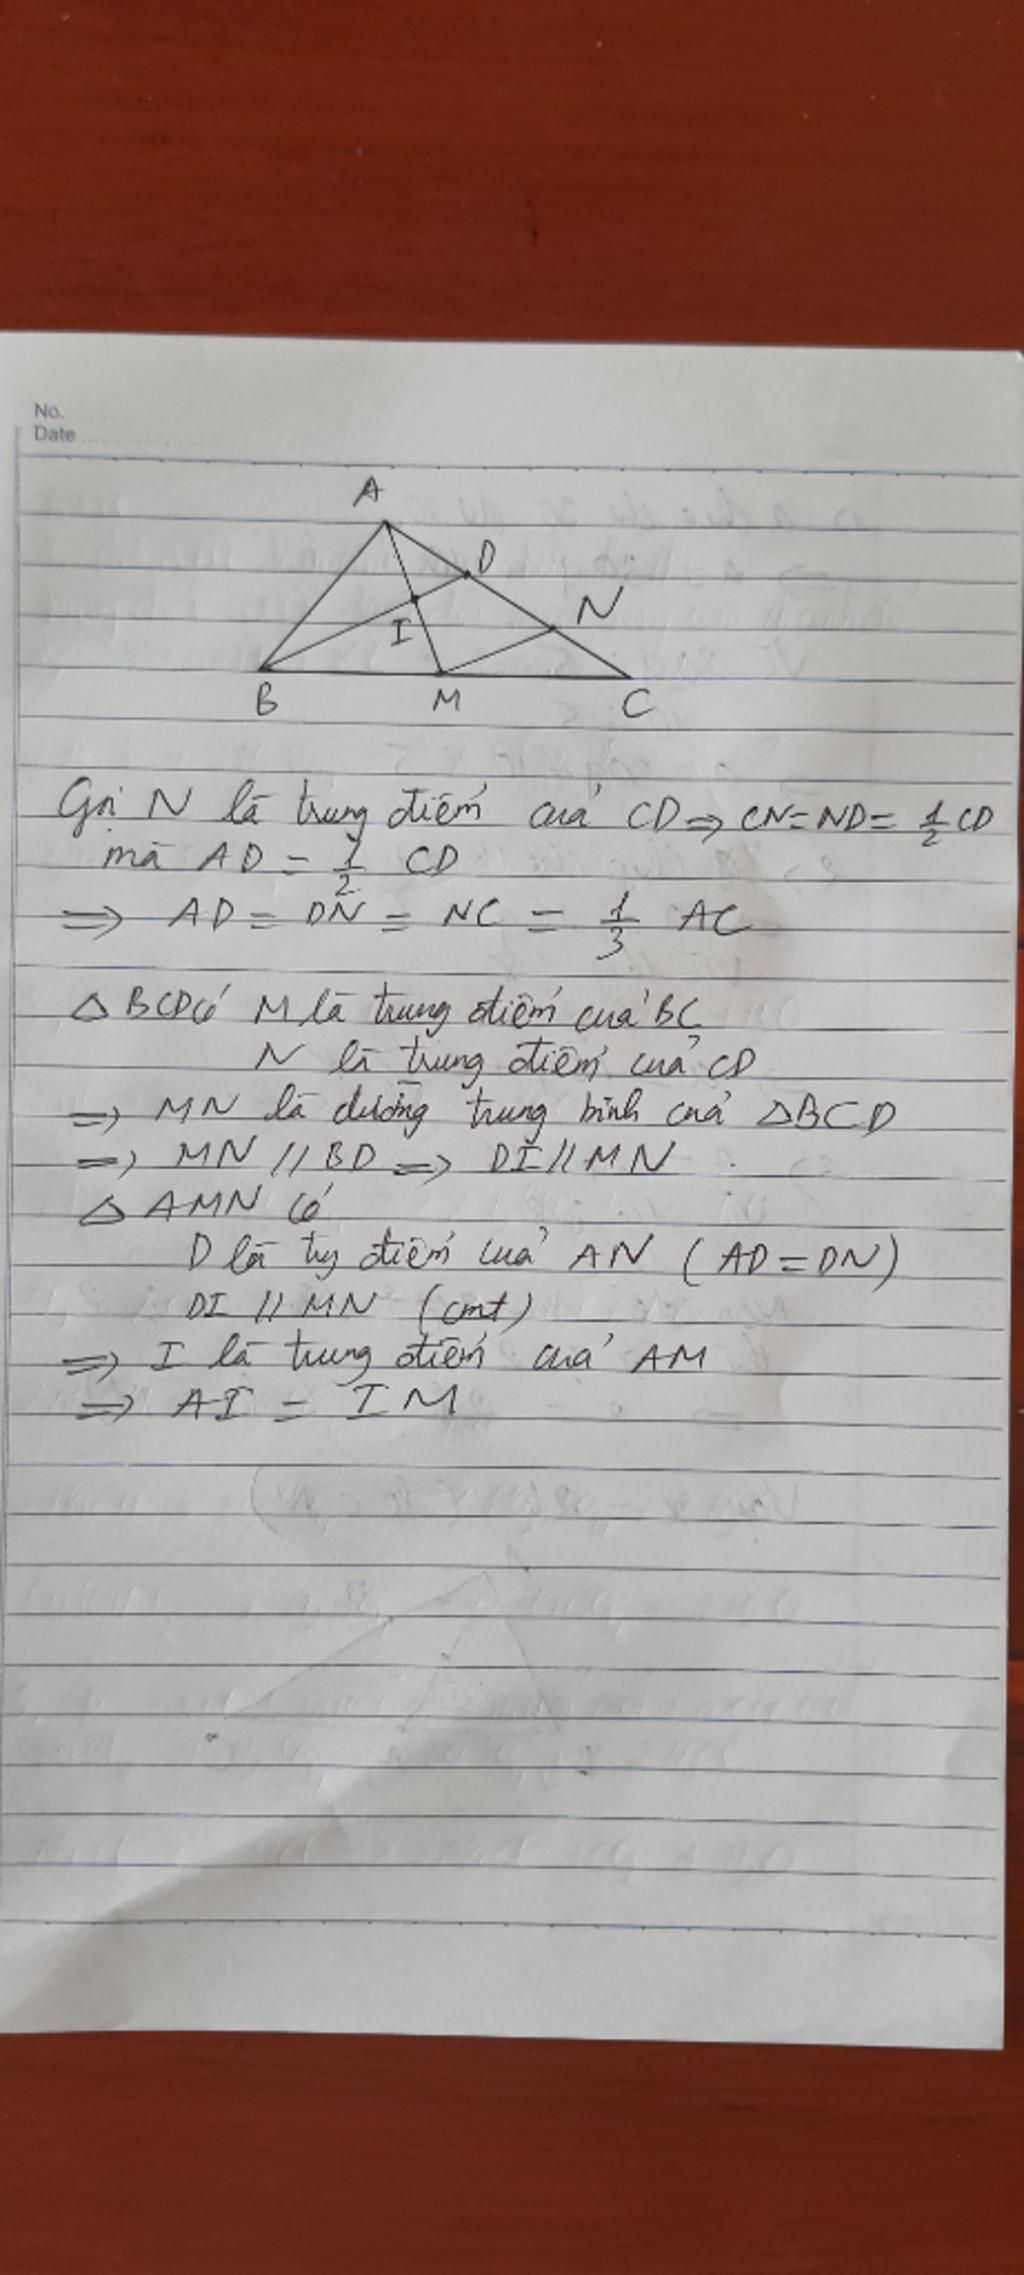 No.
Date
A
D
N
I
B M C
Gọi N là trung điểm của CD => CN = ND = 1/2 CD
mà AD = 1/2 CD
=> AD = DN = NC = 1/3 AC
△ BCD có M là trung điểm của BC
N là trung điểm của CD
=> MN là đường trung bình của △BCD
=> MN // BD => DI // MN
△ AMN có
D là tg điểm của AN (AD = DN)
DI // MN (cmt)
=> I là trung điểm của AM
=> AI = IM